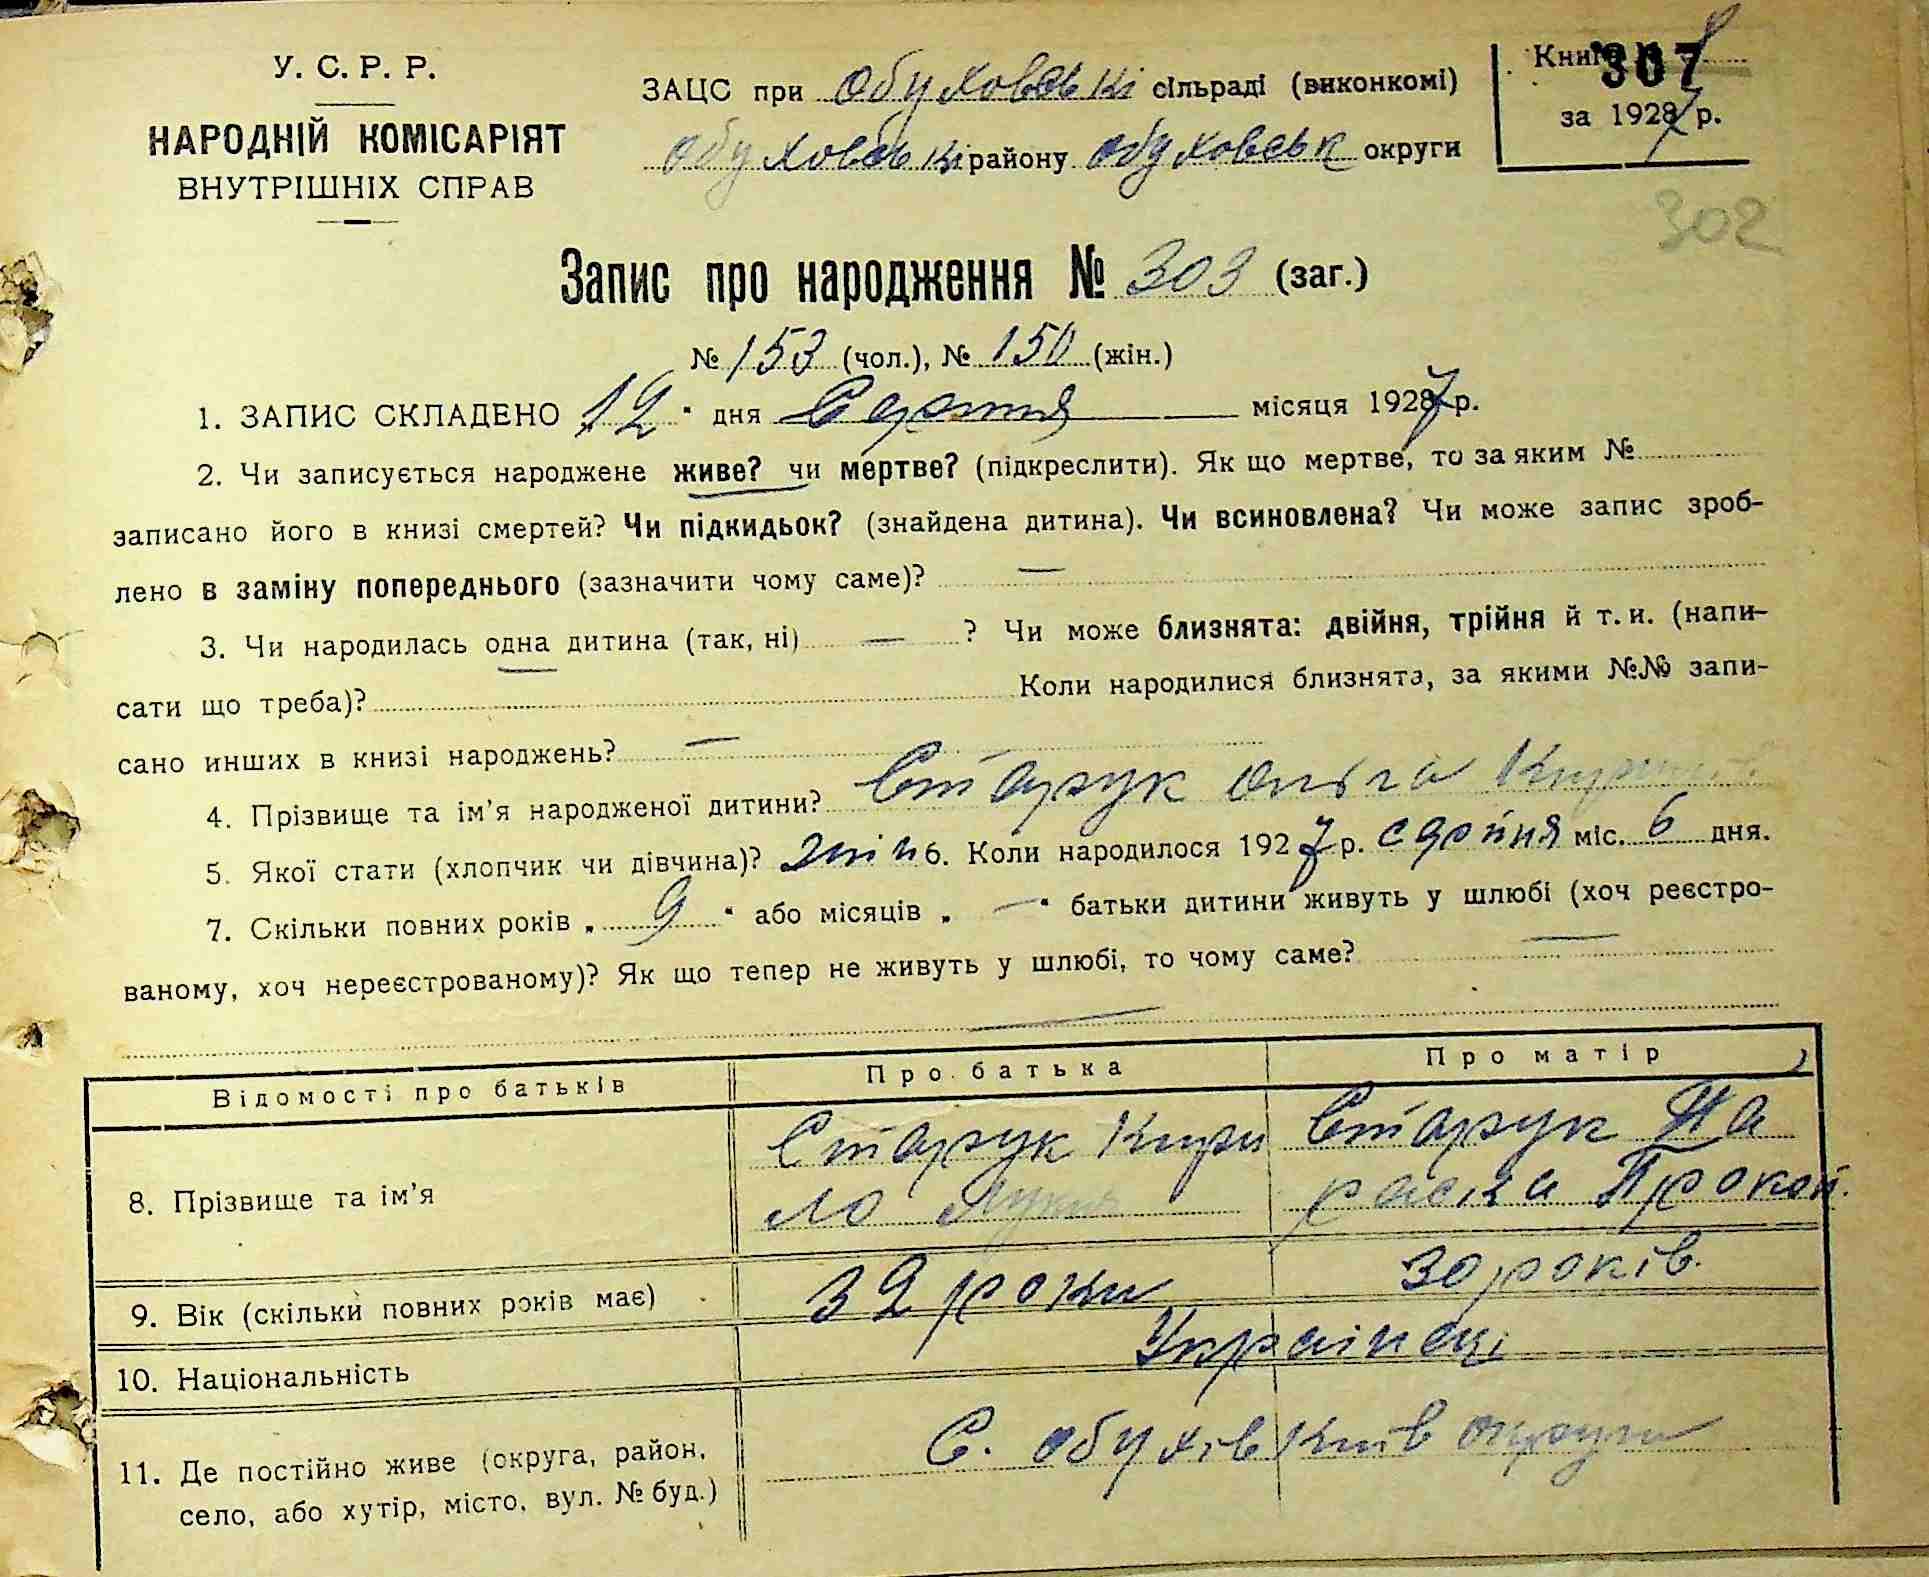 У. С. Р. Р.
НАРОДНІЙ КОМІСАРІЯТ
ВНУТРІШНІХ СПРАВ
ЗАЦС при Обуховські сільраді (виконкомі)
Обуховські району Обуховськ округи
Книга
307
за 1927 р.
302
Запис про народження № 303 (заг.)
№ 153 (чол.), № 150 (жін.)
1. ЗАПИС СКЛАДЕНО 12 " дня Серпня місяця 1927 р.
2. Чи записується народжене живе? чи мертве? (підкреслити). Як що мертве, то за яким №
записано його в книзі смертей? Чи підкидьок? (знайдена дитина). Чи всиновлена? Чи може запис зроб-
лено в заміну попереднього (зазначити чому саме)? —
3. Чи народилась одна дитина (так, ні) — ? Чи може близнята: двійня, трійня й т. и. (напи-
сати що треба)? Коли народилися близнята, за якими №№ запи-
сано инших в книзі народжень? —
4. Прізвище та ім'я народженої дитини? Старук Ольга
5. Якої стати (хлопчик чи дівчина)? жін 6. Коли народилося 1927 р. серпня міс. 6 дня.
7. Скільки повних років „ 9 " або місяців „ — " батьки дитини живуть у шлюбі (хоч реєстро-
ваному, хоч нереєстрованому)? Як що тепер не живуть у шлюбі, то чому саме? —
Відомості про батьків
Про батька
Про матір
8. Прізвище та ім'я
Старук Кири
ло
Старук Па
раска Прокоп.
9. Вік (скільки повних років має)
32 роки
30 років.
10. Національність
Українці
11. Де постійно живе (округа, район,
село, або хутір, місто, вул. № буд.)
С. Обухів Київ округи